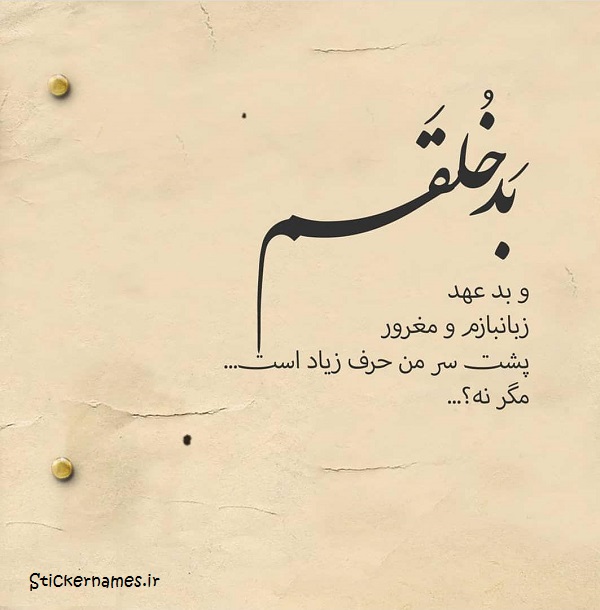 بَدخُلقَم
و بد عهد
زبانبازم و مغرور
پشت سر من حرف زیاد است...
مگر نه؟...
Stickernames.ir